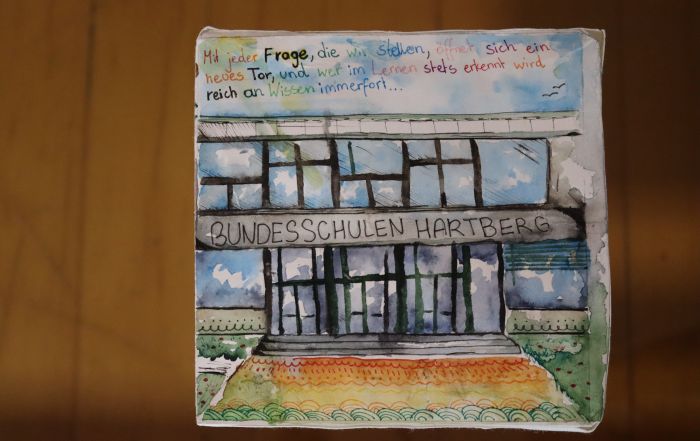 Mit jeder Frage, die wir stellen, öffnet sich ein
neues Tor, und wer im Lernen stets erkennt wird
reich an Wissen immerfort...
BUNDESSCHULEN HARTBERG